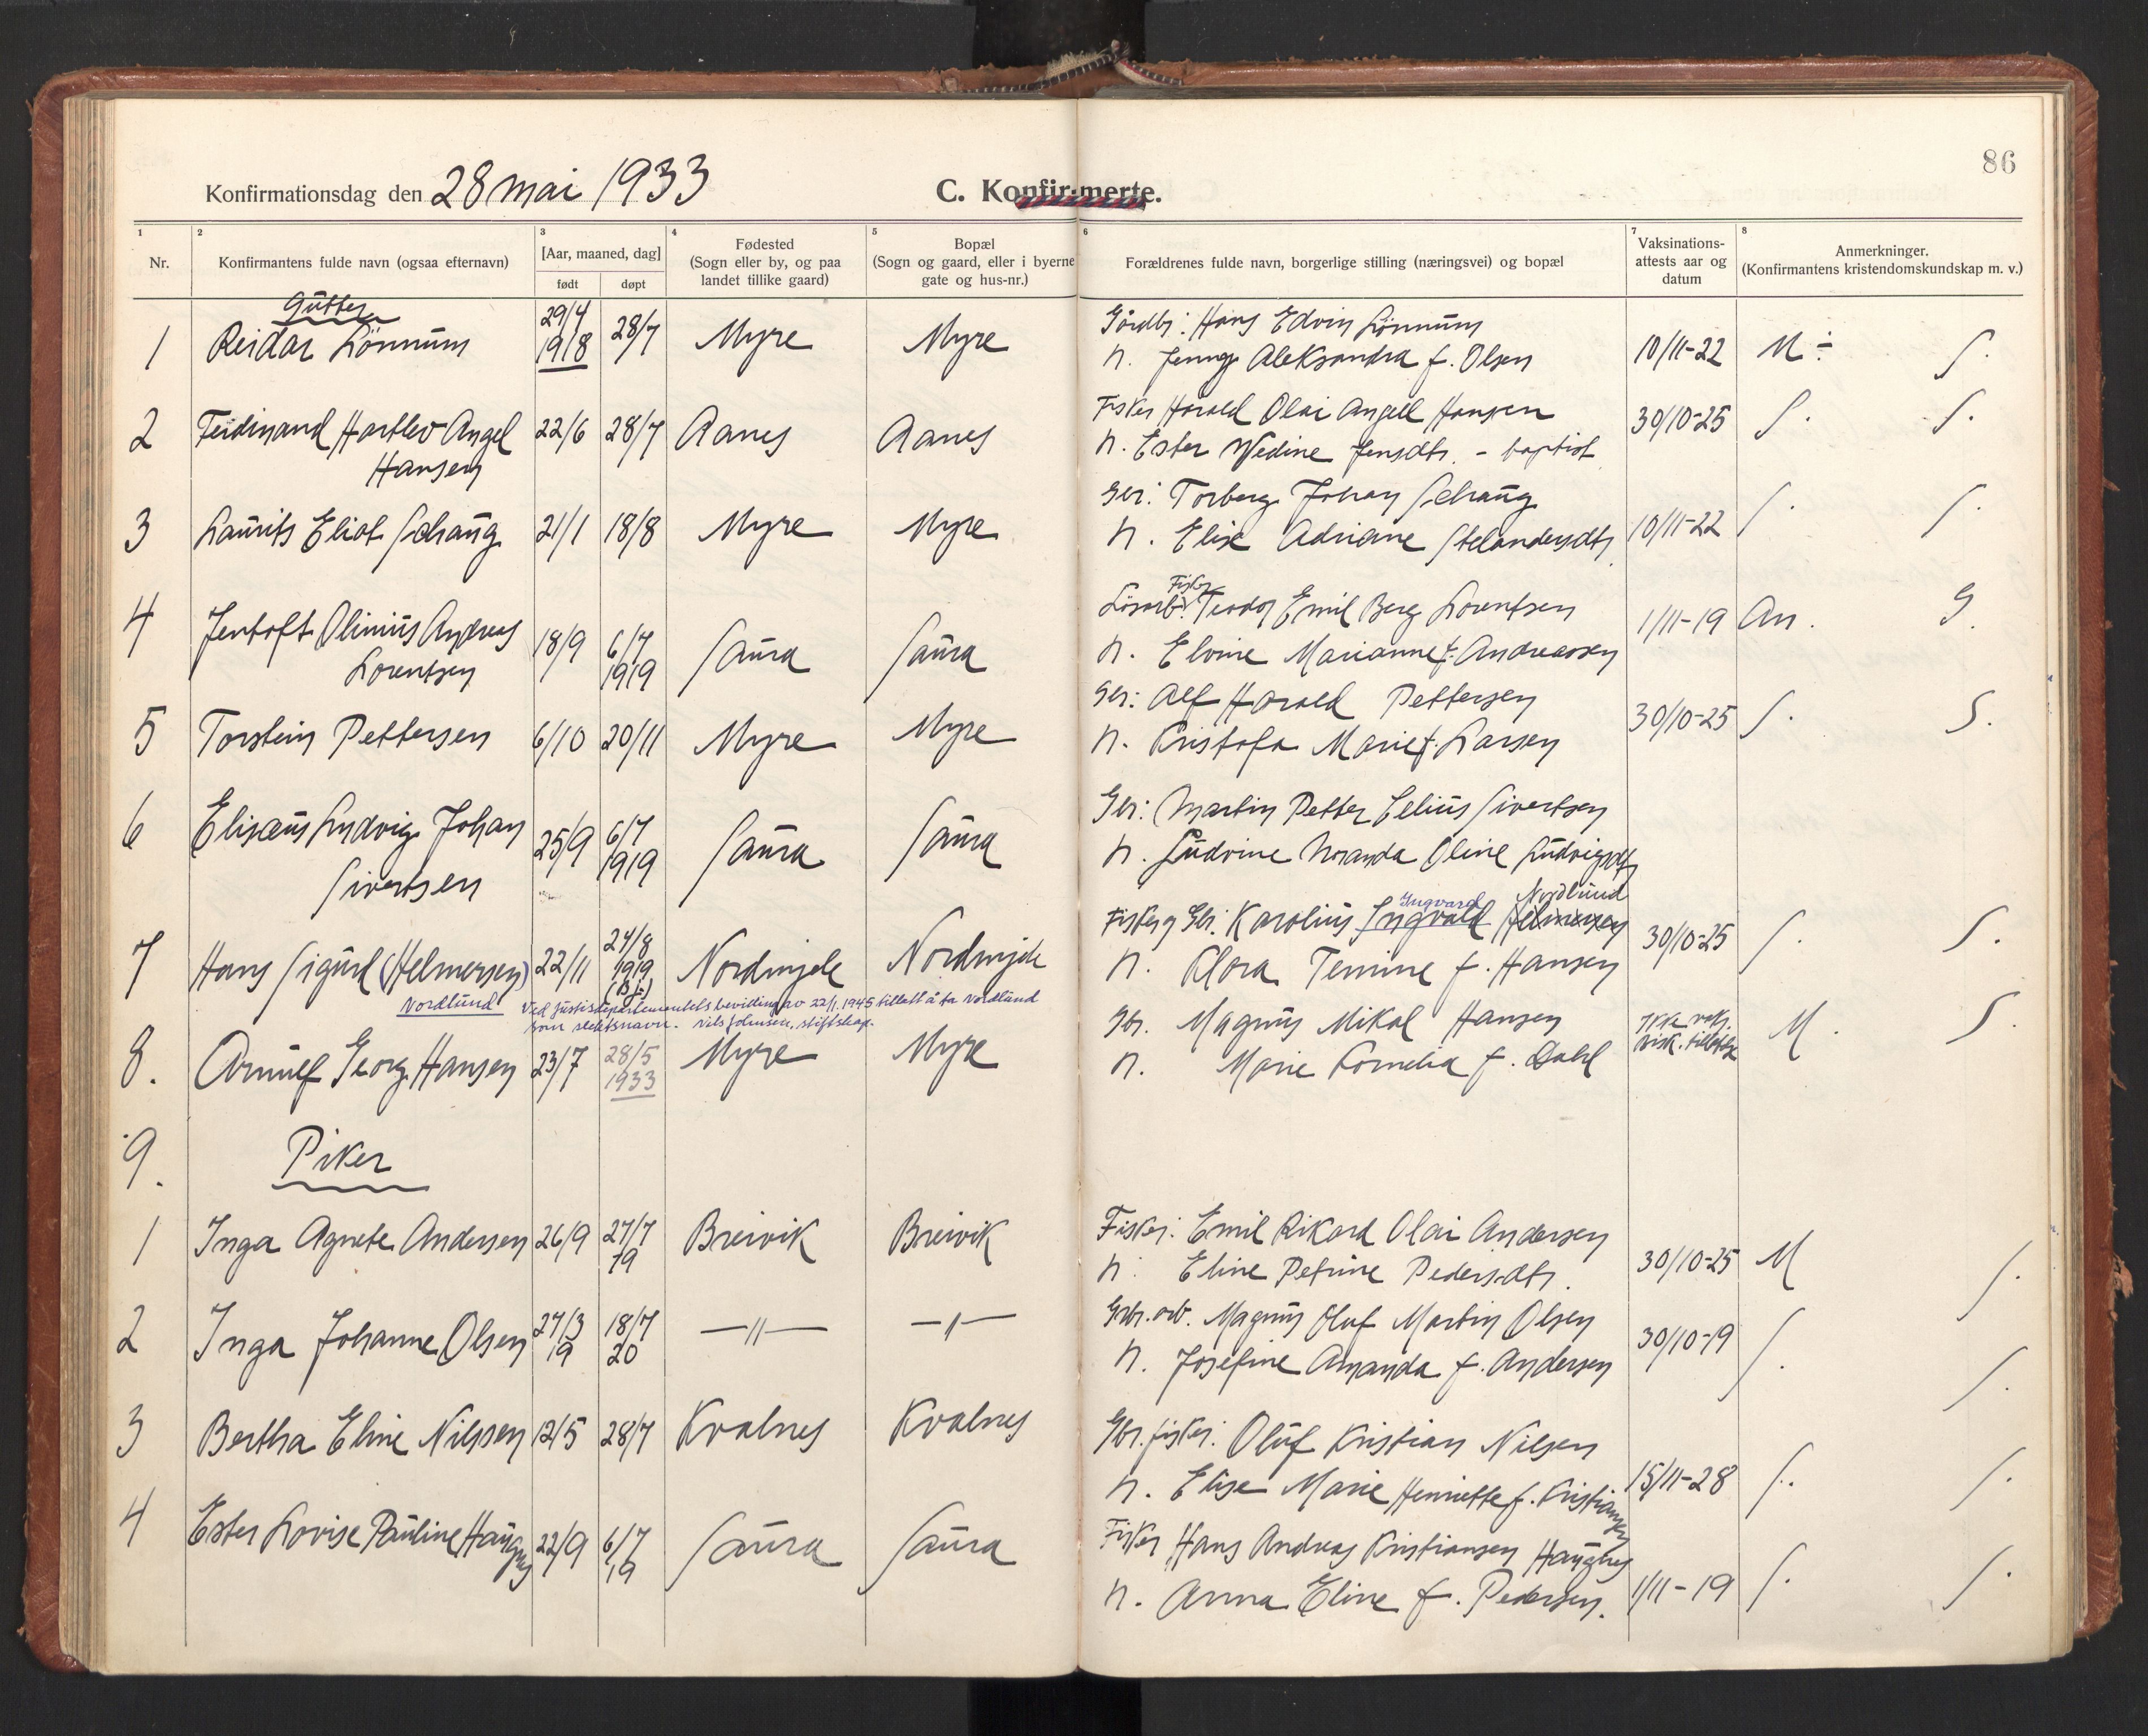 86
Konfirmationsdag den 28 mai 1933
C. Konfirmerte.
1 Nr.
2 Konfirmantens fulde navn (ogsaa efternavn)
3 [Aar, maaned, dag] født døpt
4 Fødested (Sogn eller by, og paa landet tillike gaard)
5 Bopæl (Sogn og gaard, eller i byerne gate og hus-nr.)
6 Forældrenes fulde navn, borgerlige stilling (næringsvei) og bopæl
7 Vaksinations-attests aar og datum
8 Anmerkninger. (Konfirmantens kristendomskundskap m. v.)
Gutter
1 Reidar Lönnum 29/4 1918 28/7 Myre Myre Gårdbr: Hans Edvin Lönnum
h. Jenny Aleksandra f. Olsen 10/11-22 M ÷ S.
2 Ferdinand Hartlev Angel 22/6 28/7 Aanes Aanes Fisker Harald Olai Angell Hansen 30/10-25 S. S.
Hansen h. Ester Nedine Jensdtr. - baptist
3 Laurits Eliot Schaug 21/1 18/8 Myre Myre Gbr: Torberg Johan Schaug
h. Elise Adriane 10/11-22 S. S.
4 Jentoft Olinius Andreas 18/9 6/7 1919 Saura Saura Lösarb: Fisker Teodor Emil Berg Lorentsen 1/11-19 An. G.
Lorentsen h. Elvine Marianne f. Andreassen
5 Torstein Pettersen 6/10 20/11 Myre Myre Gbr: Alf Harald Pettersen 30/10-25 S. S.
h. Kristofa Marie f. Larsen
6 Elisæus Ludvig Johan 25/9 6/7 1919 Saura Saura Gbr: Martin Petter Selius Sivertsen
Sivertsen h. Ludvine Noranda Oline Ludvigsdtr
7 Hans Sigurd (Helmersen) 22/11 24/8 1919 (Bj:) Nordmjele Nordmjele Fisker og Gbr. Karolius Ingvald Ingvard Helmersen Nordlund 30/10-25 S. S.
h. Klara Temine f. Hansen
Nordlund Ved justisdepartementets bevilling av 22/1.1945 tillatt å ta Nordlund
som slektsnavn. Nils Johnsen, stiftskap.
8. Arnulf Georg Hansen 23/7 28/5 1933 Myre Myre Gbr. Magnus Mikal Hansen Ikke vaks. M. S.
h. Marie Kornelia f. Dahl bisk. tillatelse
9. Piker
1 Inga Agnete Andersen 26/9 27/7 19 Breivik Breivik Fisker: Emil Rikard Olai Andersen
h. Eline Petrine Pedersdtr. 30/10-25 M S.
2 Inga Johanne Olsen 27/3 19 18/7 20 —"— —"— Gbr. arb. Magnus Oluf Martin Olsen
h. Josefine Amanda f. Andersen 30/10-19 S. S.
3 Bertha Eline Nilsen 12/5 28/7 Kvalnes Kvalnes Gbr. fisker. Oluf Kristian Nilsen
h. Elise Marie Henriette f. Kristiansen 15/11-28 S. S.
4 Ester Lovise Pauline Haugnes 22/9 6/7 19 Saura Saura Fisker Hans Andreas Kristiansen Haugnes
h. Anna Eline f. Pedersen. 1/11-19 S. S.